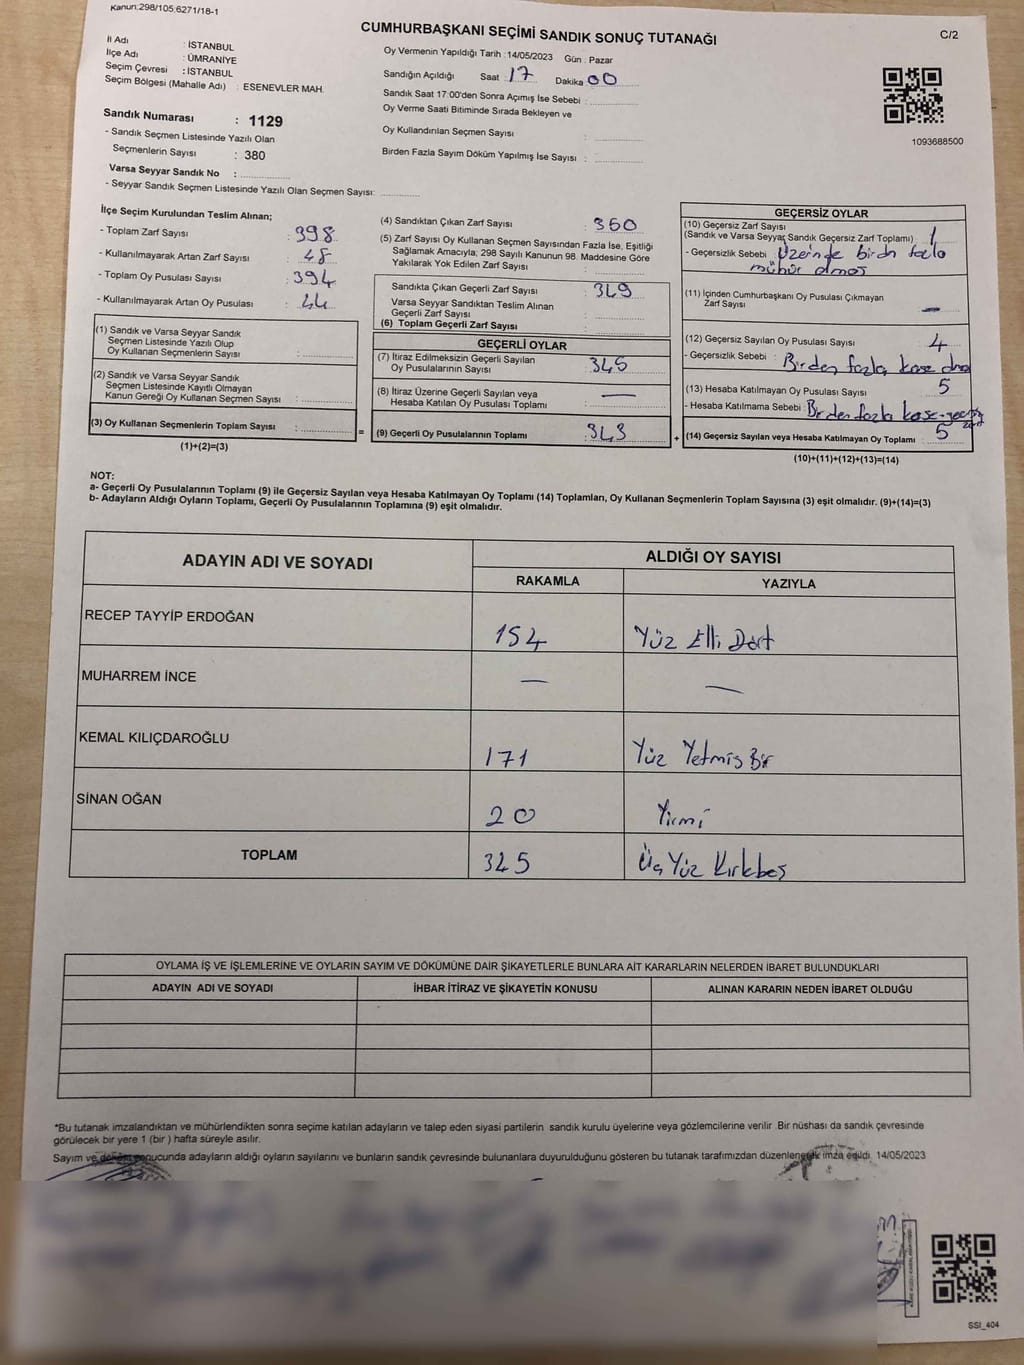 Kanun:298/105,6271/18-1
CUMHURBAŞKANI SEÇİMİ SANDIK SONUÇ TUTANAĞI
C/2
İl Adı : İSTANBUL
İlçe Adı : ÜMRANİYE
Seçim Çevresi : İSTANBUL
Seçim Bölgesi (Mahalle Adı) : ESENEVLER MAH.
Oy Vermenin Yapıldığı Tarih : 14/05/2023 Gün : Pazar
Sandığın Açıldığı Saat : 17 Dakika : 00
Sandık Saat 17:00'den Sonra Açımış İse Sebebi :
Oy Verme Saati Bitiminde Sırada Bekleyen ve
Oy Kullandırılan Seçmen Sayısı :
Birden Fazla Sayım Döküm Yapılmış İse Sayısı :
1093688500
Sandık Numarası : 1129
- Sandık Seçmen Listesinde Yazılı Olan
Seçmenlerin Sayısı : 380
Varsa Seyyar Sandık No :
- Seyyar Sandık Seçmen Listesinde Yazılı Olan Seçmen Sayısı:
İlçe Seçim Kurulundan Teslim Alınan;
- Toplam Zarf Sayısı : 398
- Kullanılmayarak Artan Zarf Sayısı : 48
- Toplam Oy Pusulası Sayısı : 394
- Kullanılmayarak Artan Oy Pusulası : 44
(1) Sandık ve Varsa Seyyar Sandık
Seçmen Listesinde Yazılı Olup
Oy Kullanan Seçmenlerin Sayısı :
(2) Sandık ve Varsa Seyyar Sandık
Seçmen Listesinde Kayıtlı Olmayan
Kanun Gereği Oy Kullanan Seçmen Sayısı :
(3) Oy Kullanan Seçmenlerin Toplam Sayısı :
(1)+(2)=(3)
=
(4) Sandıktan Çıkan Zarf Sayısı : 350
(5) Zarf Sayısı Oy Kullanan Seçmen Sayısından Fazla İse, Eşitliği
Sağlamak Amacıyla, 298 Sayılı Kanunun 98. Maddesine Göre
Yakılarak Yok Edilen Zarf Sayısı :
Sandıkta Çıkan Geçerli Zarf Sayısı : 349
Varsa Seyyar Sandıktan Teslim Alınan
Geçerli Zarf Sayısı :
(6) Toplam Geçerli Zarf Sayısı :
GEÇERLİ OYLAR
(7) İtiraz Edilmeksizin Geçerli Sayılan
Oy Pusulalarının Sayısı : 345
(8) İtiraz Üzerine Geçerli Sayılan veya
Hesaba Katılan Oy Pusulası Toplamı : —
(9) Geçerli Oy Pusulalarının Toplamı : 343
+
GEÇERSİZ OYLAR
(10) Geçersiz Zarf Sayısı
(Sandık ve Varsa Seyyar Sandık Geçersiz Zarf Toplamı) : 1
- Geçersizlik Sebebi : Üzerinde birden fazla
mühür olması
(11) İçinden Cumhurbaşkanı Oy Pusulası Çıkmayan
Zarf Sayısı : —
(12) Geçersiz Sayılan Oy Pusulası Sayısı : 4
- Geçersizlik Sebebi : Birden fazla kaşe
(13) Hesaba Katılmayan Oy Pusulası Sayısı : 5
- Hesaba Katılmama Sebebi : Birden fazla kaşe
(14) Geçersiz Sayılan veya Hesaba Katılmayan Oy Toplamı : 5
(10)+(11)+(12)+(13)=(14)
NOT:
a- Geçerli Oy Pusulalarının Toplamı (9) ile Geçersiz Sayılan veya Hesaba Katılmayan Oy Toplamı (14) Toplamları, Oy Kullanan Seçmenlerin Toplam Sayısına (3) eşit olmalıdır. (9)+(14)=(3)
b- Adayların Aldığı Oyların Toplamı, Geçerli Oy Pusulalarının Toplamına (9) eşit olmalıdır.
ADAYIN ADI VE SOYADI
ALDIĞI OY SAYISI
RAKAMLA YAZIYLA
RECEP TAYYİP ERDOĞAN 154 Yüz Elli Dört
MUHARREM İNCE — —
KEMAL KILIÇDAROĞLU 171 Yüz Yetmiş Bir
SİNAN OĞAN 20 Yirmi
TOPLAM 345 Üç Yüz Kırkbeş
OYLAMA İŞ VE İŞLEMLERİNE VE OYLARIN SAYIM VE DÖKÜMÜNE DAİR ŞİKAYETLERLE BUNLARA AİT KARARLARIN NELERDEN İBARET BULUNDUKLARI
ADAYIN ADI VE SOYADI İHBAR İTİRAZ VE ŞİKAYETİN KONUSU ALINAN KARARIN NEDEN İBARET OLDUĞU
*Bu tutanak imzalandıktan ve mühürlendikten sonra seçime katılan adayların ve talep eden siyasi partilerin sandık kurulu üyelerine veya gözlemcilerine verilir. Bir nüshası da sandık çevresinde
görülecek bir yere 1 (bir ) hafta süreyle asılır.
Sayım ve döküm sonucunda adayların aldığı oyların sayılarını ve bunların sandık çevresinde bulunanlara duyurulduğunu gösteren bu tutanak tarafımızdan düzenlenerek imza edildi. 14/05/2023
SSI_404